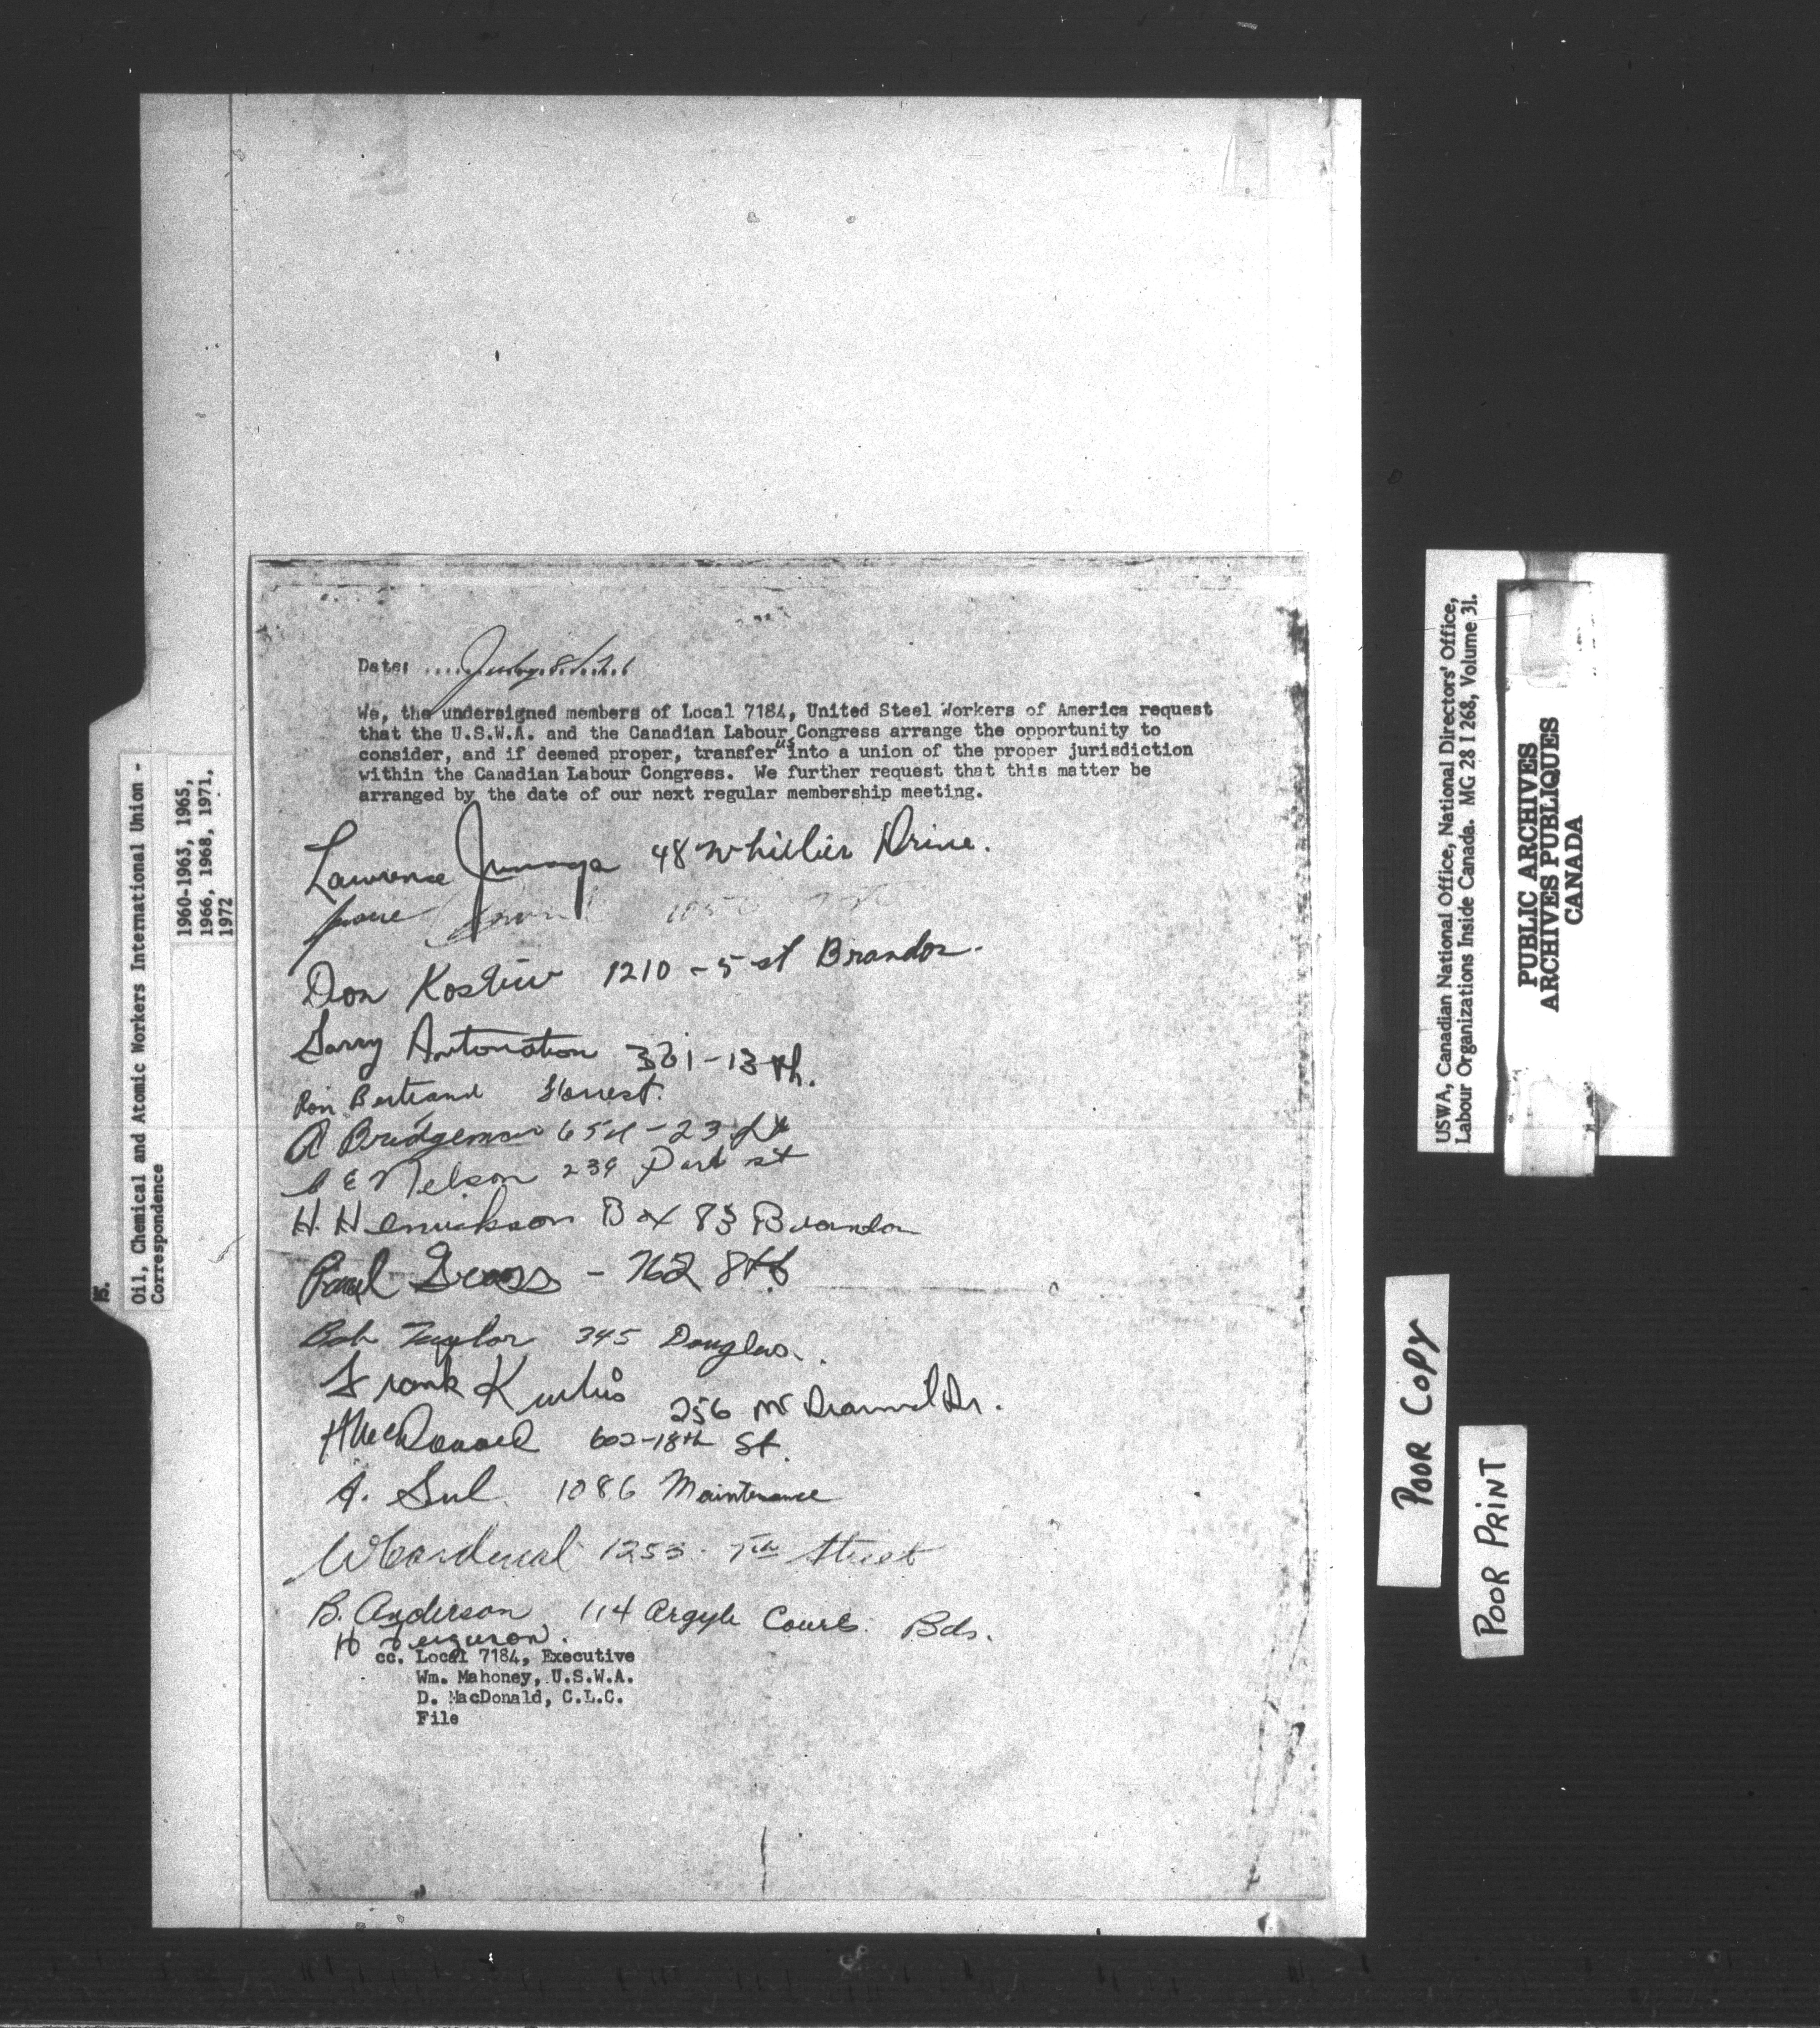 Date: ....July 8/71
We, the undersigned members of Local 7184, United Steel Workers of America request
that the U.S.W.A. and the Canadian Labour Congress arrange the opportunity to
consider, and if deemed proper, transfer us into a union of the proper jurisdiction
within the Canadian Labour Congress. We further request that this matter be
arranged by the date of our next regular membership meeting.
Lawrence 48 Whillier Drive.
Don Kostiw 1210 - 5 st Brandon.
Larry Antonation 321-13th.
Ron Bertrand Forrest.
A Bridgeman 654 - 23 st
E Nelson 239 Park st
H. Henrickson Box 83 Brandon
Paul Gross - 762 8th
Bob Taylor 345 Douglas.
Frank Kurtis 256 Mc Diarmid Dr.
H MacDonald 602-18th St.
A. Sul 1086 Maintenance
W Cardinal 1253 - 7th Street
B. Anderson 114 Argyle Courts. Bdn.
H Ferguson.
cc. Local 7184, Executive
Wm. Mahoney, U.S.W.A.
D. MacDonald, C.L.C.
File
15.
Oil, Chemical and Atomic Workers International Union -
Correspondence
1960-1963, 1965,
1966, 1968, 1971,
1972
USWA, Canadian National Office, National Directors' Office,
Labour Organizations Inside Canada. MG 28 I 268, Volume 31.
PUBLIC ARCHIVES
ARCHIVES PUBLIQUES
CANADA
POOR COPY
POOR PRINT